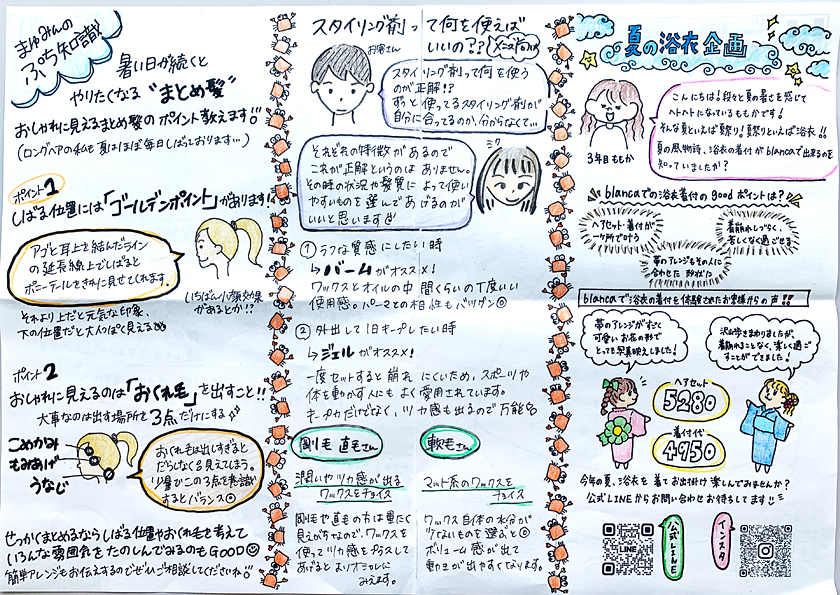 まゆみんの
ぷち知識
暑い日が続くと
やりたくなる"まとめ髪"
おしゃれに見えるまとめ髪のポイント教えます!!
(ロングヘアの私も夏はほぼ毎日しばっております…)
ポイント1
しばる位置には「ゴールデンポイント」があります!
アゴと耳上を結んだライン
の延長線上でしばると
ポーテールをきれいに見せてくれます。
いちばん小顔効果
があるとか!?
それより上だと元気な印象、
下の位置だと大人っぽく見えるぬ
ポイント2
おしゃれに見えるのは「おくれ毛」を出すこと!!
大事なのは出す場所を3点だけにする
こめかみ
もみあげ
うなじ
おくれ毛は出しすぎると
だらしなくる見えてしまう。
少量でこの3点を意識
するとバランス◎
せっかくまとめるならしばる位置やおくれ毛を考えて
いろんな雰囲気をたのしんでみるのもGOOD
簡単アレンジもお伝えするのでぜひご相談してくださいね!!
スタイリング剤って何を使えば
いいの??
メンズ向け
お客さん
スタイリング剤って何を使う
のが正解!?
ずっと使ってるスタイリング剤が
自分に合ってるか、分からなくて…
それぞれの特徴があるので
これが正解というのは ありません。
その時の状況や髪質に よって使い
やすいものを選んであげるのが
いいと思います
ミク
① ラフな質感にしたい時
↳ バームがオススメ!
ワックスとオイルの中間くらいの丁度いい
使用感。パーマとの相性もバツグン◎
② 外出して1日キープしたい時
↳ ジェルがオススメ!
一度セットすると崩れにくいため、スポーツや
体を動かす人にもよく愛用されています。
キープ力だけでなく、ツヤ感も出るので万能
剛毛 直毛さん
潤いやツヤ感が出る
ワックスをチョイス
剛毛や直毛の方は重たく
見えがちなので、ワックスを
使ってツヤ感をプラスして
あげるとよりオシャレに
みえます。
軟毛さん
マット系のワックスを
チョイス
ワックス自体の水分が
少ないものを選ぶと◎
ボリューム感が出て
動きが出やすくなります。
夏の浴衣企画
3年目ももか
こんにちは!段々と夏の暑さを感じて
ヘトヘトになっているももかです!
そんな夏といえば祭り!夏祭りといえば浴衣!!
夏の風物詩、浴衣の着付がblancaで出来るのを
知っていましたか?
blancaでの浴衣着付のgoodポイントは?
ヘアセット・着付が
一ヶ所で叶う
着崩れしづらく、
苦しくなく過ごせる
帯のアレンジもその人に
合わせた形状に
blancaで浴衣の着付を体験されたお客様からの声!!
帯のアレンジがすごく
可愛いお花の形で
とっても写真映えしました!
沢山歩きまわりましたが、
着崩れることなく、楽しく過ご
すことができました!
ヘアセット
5280
着付代
4950
今年の夏、浴衣を着てお出掛け楽しんでみませんか?
公式LINEからお問い合わせお待ちしてます!!
LINE
公式LINE
インスタ